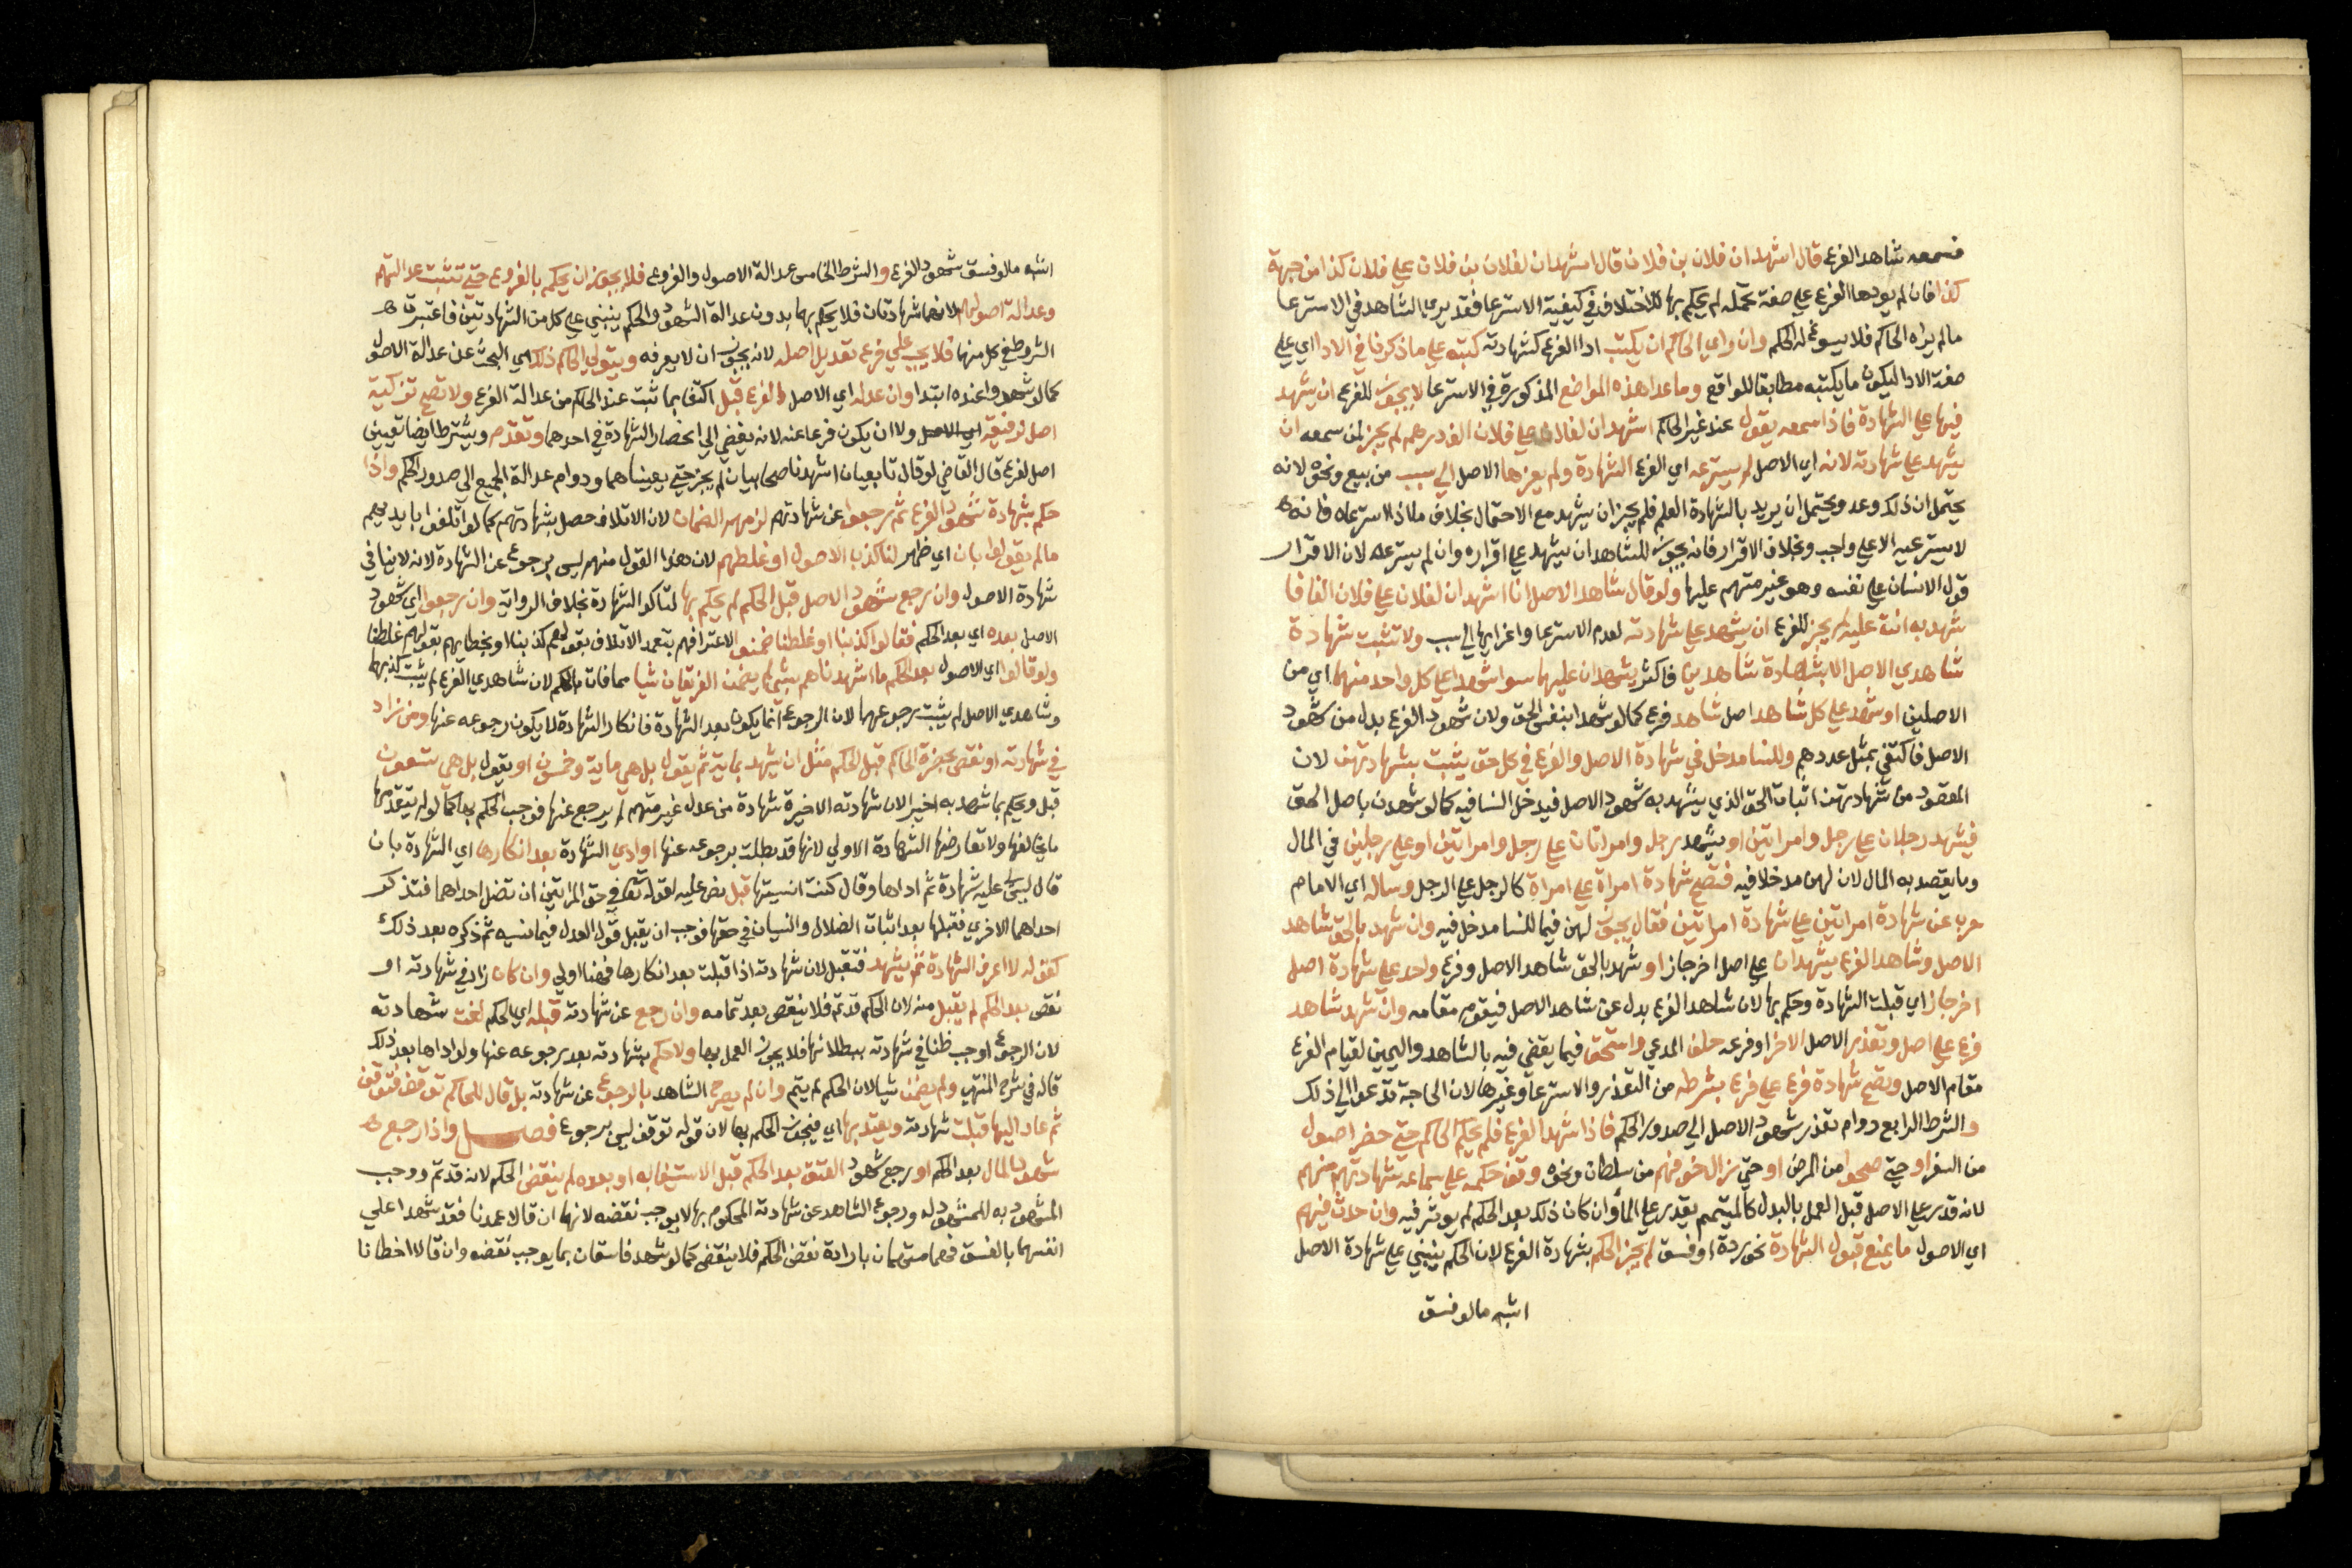 فسمعه شاهد الفرع قال اشهد ان فلان بن فلان قال اشهد ان لفلان بن فلان علي فلان كذا من جهة
كذا فان لم يودها الفرع علي صفة تحمله لم يحكم بها للاختلاف في كيفية الاسترعا فقد يري الشاهد في الاسترعا
مالم يراه الحاكم فلا يسوغ له الحكم وان راي الحاكم ان يكتب ادا الفرع كشهادته كتبه علي ما ذكرنا في الادا اي علي
صفة الادا ليكون ما يكتبه مطابقا للواقع وما عدا هذه المواضع المذكورة في الاسترعا لا يجوز للفرع ان يشهد
فيها علي الشهادة فاذا سمعه يقول عند غير الحاكم اشهد ان لفلان علي فلان الف درهم لم يجز لمن سمعه ان
يشهد علي شهادته لانه اي الاصل لم يسترعه اي الفرع الشهادة ولم يعزها الاصل الي سبب من بيع ونحوه لانه
يحتمل ان ذلك وعد ويحتمل ان يريد بالشهادة العلم فلم يجز ان يشهد مع الاحتمال بخلاف ما اذا استرعاه فانه
لا يسترعيه الا علي واجب وبخلاف الاقرار فانه يجوز للشاهد ان يشهد علي اقراره وان لم يسترعه لان الاقرار
قول الانسان علي نفسه وهو غير متهم عليها ولو قال شاهد الاصل انا اشهد ان لفلان علي فلان الفا فا
شهد به انت عليه لم يجز للفرع ان يشهد علي شهادته لعدم الاسترعا واعزايها الي سبب ولا تثبت شهادة
شاهدي الاصل الا بشهادة شاهدين فاكثر يشهدان عليهما سوا شهدا علي كل واحد منهما اي من
الاصلين او شهد علي كل شاهد اصل شاهد فرع كما لو شهدا بنفس الحق ولان شهود الفرع بدل من شهود
الاصل فاكتفي بمثل عددهم وللنسا مدخل في شهادة الاصل والفرع في كل حق يثبت بشهادتهن لان
المقصود من شهادتهن اثبات الحق الذي يشهد به شهود الاصل فيدخل النسا فيه كما لو شهدن باصل الحق
فيشهد رجلان علي رجل وامراتين او يشهد رجل وامراتان علي رجل وامراتين او علي رجلين في المال
وما يقصد به المال لان لهن مدخلا فيه فتصح شهادة امراة علي امراة كالرجل علي الرجل وساله اي الامام
حرب عن شهادة امراتين علي شهادة امراتين فقال يجوز لهن فيما للنسا مدخل فيه وان شهد بالحق شاهد
الاصل وشاهد الفرع يشهدان علي اصل اخر جاز او شهد بالحق شاهد الاصل وفرع واحد علي شهادة اصل
اخر جاز اي قبلت الشهادة وحكم بها لان شاهد الفرع بدل عن شاهد الاصل فيقوم مقامه وان شهد شاهد
فرع علي اصل وتعذر الاصل الاخر او فرعه حلف المدعي واستحق فيما يقضي فيه بالشاهد واليمين لقيام الفرع
مقام الاصل وتصح شهادة فرع علي فرع بشرطه من التعذر والاسترعا وغيرها لان الحاجة تدعوا الي ذلك
والشرط الرابع دوام تعذر شهود الاصل الي صدور الحكم فاذا شهد الفرع فلم يحكم الحاكم حتي حضر اصول
من السفر او حتي صحوا من المرض او حتي زال خوفهم من سلطان ونحوه وقف حكمه علي سماعه شهادتهم منهم
لانه قدر علي الاصل قبل العمل بالبدل كالمتيمم يقدر علي الما وان كان ذلك بعد الحكم لم يوثر فيه وان حدث فيهم
اي الاصول ما يمنع قبول الشهادة نحو ردة او فسق لم يجز الحكم بشهادة الفرع لان الحكم ينبني علي شهادة الاصل
اشبه ما لو فسق
اشبه ما لو فسق شهود الفرع والشرط الخامس عدالة الاصول والفروع فلا يجوز ان يحكم بالفروع حتي تثبت عدالتهم
وعدالة اصولهم لانهما شهادتان فلا يحكم بهما بدون عدالة الشهود والحكم ينبني علي كل من الشهادتين فاعتبرت
الشروط في كل منهما فلا يجب علي فرع تعديل اصله لانه يجوز ان لا يعرفه ويتولي الحاكم ذلك اي البحث عن عدالة الاصول
كما لو شهدوا عنده ابتدا وان عدله اي الاصل الفرع قبل اكتفا بما ثبت عند الحاكم من عدالة الفرع ولا تصح تزكية
اصل لرفيقه اي الاصل ولا ان يكون فرعا عنه لانه يفضي الي انحصار الشهادة في احدهما وتقدم ويشترط ايضا تعيين
اصل لفرع قال القاضي لو قال تابعيان اشهدنا صحابيان لم يجز حتي يعيناهما ودوام عدالة الجميع الي صدور الحكم واذا
حكم بشهادة شهود الفرع ثم رجعوا عن شهادتهم لزمهم الضمان لان الاتلاف حصل بشهادتهم كما لو اتلفوا بايديهم
مالم يقولوا بان اي ظهر لنا كذب الاصول او غلطهم لان هذا القول منهم ليس برجوع عن الشهادة لانه لا ينافي
شهادة الاصول وان رجع شهود الاصل قبل الحكم لم يحكم بها لتاكد الشهادة بخلاف الرواية وان رجعوا اي شهود
الاصل بعده اي بعد الحكم فقالوا كذبنا او غلطنا ضمنوا لاعترافهم بتعمد الاتلاف بقولهم كذبنا او بخطايهم بقولهم غلطنا
ولو قالوا اي الاصول بعد الحكم ما اشهدناهم بشي لم يضمن الفريقان شيا مما فات بالحكم لان شاهدي الفرع لم يثبت كذبهما
وشاهدي الاصل لم يثبت رجوعهما لان الرجوع انما يكون بعد الشهادة فانكار الشهادة لا يكون رجوعه عنها ومن زاد
في شهادته او نقص بحضرة الحاكم قبل الحكم مثل ان يشهد بماية ثم يقول بل هي ماية وخمسون او يقول بل هي تسعون
قبل ويحكم بما شهد به اخيرا لان شهادته الاخيرة شهادة من عدل غير متهم لم يرجع عنها فوجب الحكم بها كما لو لم يتقدمها
ما يخالفها ولا تعارضها الشهادة الاولي لانها قد بطلت برجوعه عنها او ادي الشهادة بعد انكارها اي الشهادة بان
قال ليس لي عليه شهادة ثم اداها وقال كنت انسيتها قبل نص عليه لقوله تعالي في حق المراتين ان تضل احداهما فتذكر
احداهما الاخري فقبلها بعد اثبات الضلال والنسيان في حقها فوجب ان يقبل قول العدل فيما نسيه ثم ذكره بعد ذلك
كقوله لا اعرف الشهادة ثم يشهد فتقبل لان شهادته اذا قبلت بعد انكارها فهنا اولي وان كان زاد في شهادته او
نقص بعد الحكم لم يقبل منه لان الحكم قد تم فلا ينقص بعد تمامه وان رجع عن شهادته قبله اي الحكم لغت شهادته
لان الرجوع اوجب ظنا في شهادته ببطلانها فلا يجوز العمل بها ولا حكم بشهادته بعد رجوعه عنها ولو اداها بعد ذلك
قاله في شرح المنتهي ولم يضمن شيا لان الحكم لم يتم وان لم يصرح الشاهد بالرجوع عن شهادته بل قال للحاكم توقف فتوقف
ثم عاد اليها قبلت شهادته ويعتد بها اي فيجوز الحكم بها لان قوله توقف ليس برجوع فصل واذا رجع
شهود المال بعد الحكم او رجع شهود العتق بعد الحكم قبل الاستيفا به او بعده لم ينقض الحكم لانه قد تم ووجب
المشهود به للمشهود له ورجوع الشاهد عن شهادته المحكوم بها لا يوجب نقضه لانهما ان قالا عمدنا فقد شهدا علي
انفسهما بالفسق فهما متهمان بارادة نقض الحكم فلا ينقض كما لو شهد فاسقان بما يوجب نقضه وان قالا اخطانا